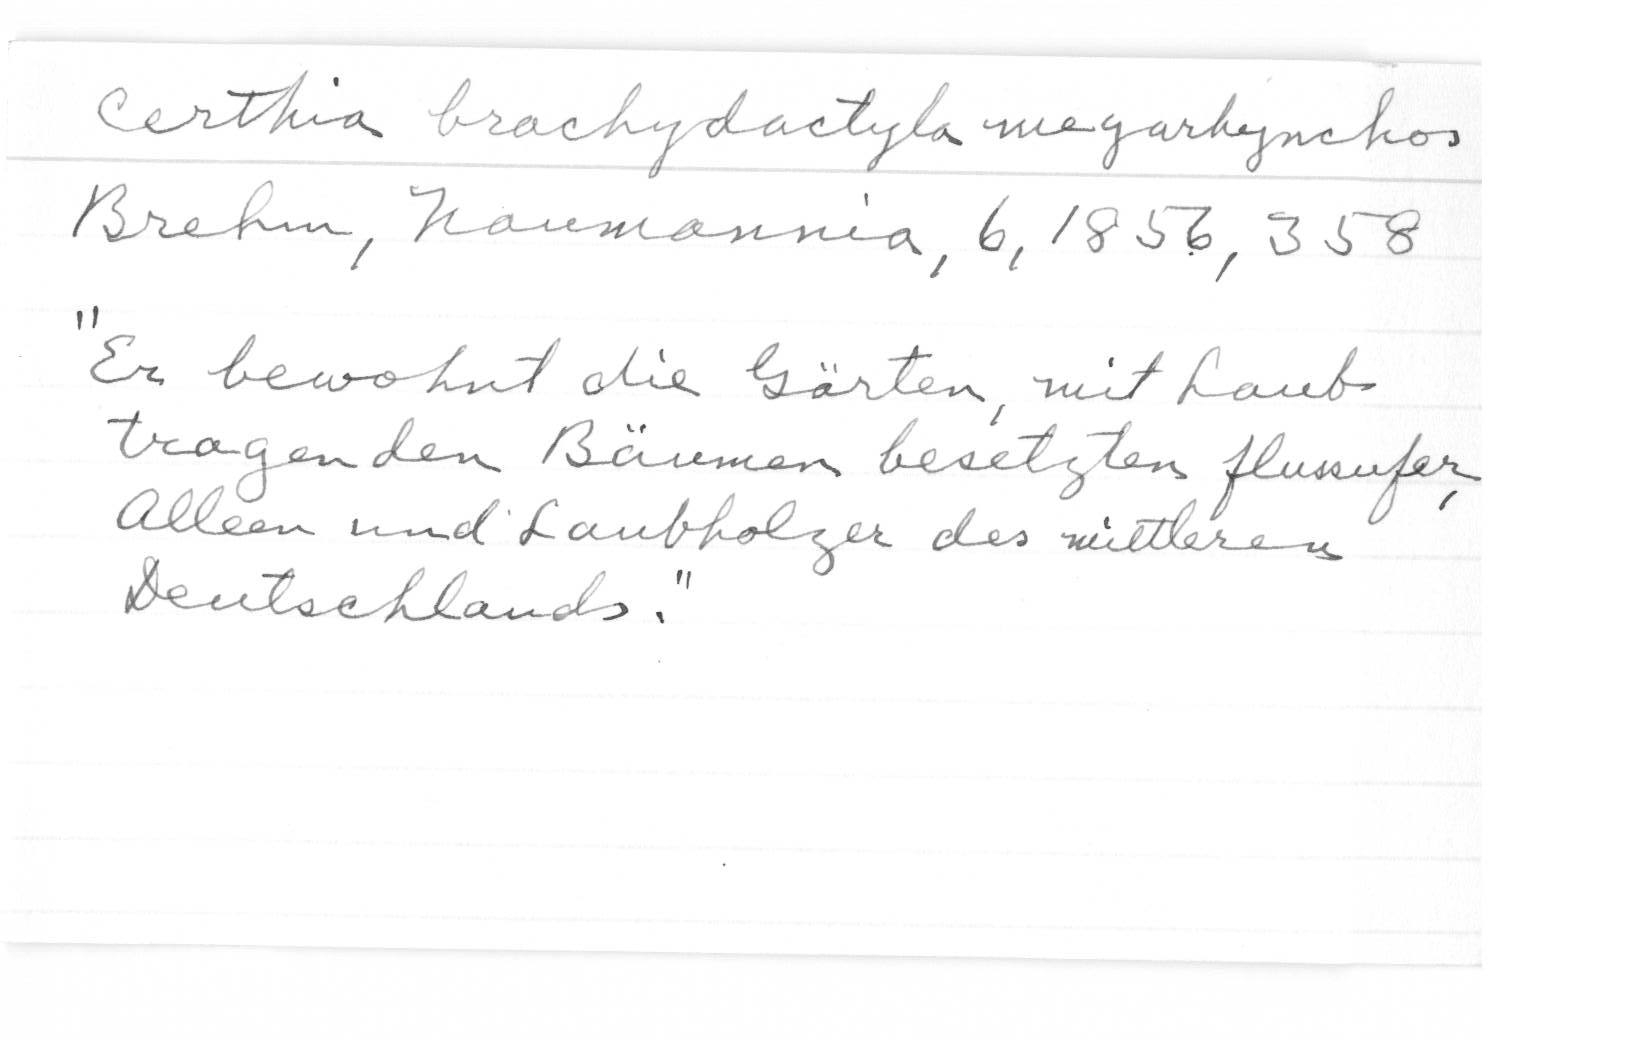 Certhia brachydactyla megarhynchos
Brehm, Naumannia, 6, 1856, 358
"Er bewohnt die Gärten, mit Laub
tragenden Bäumen besetzten flussufer,
Alleen und Laubholzer des mittleren
Deutschlands."